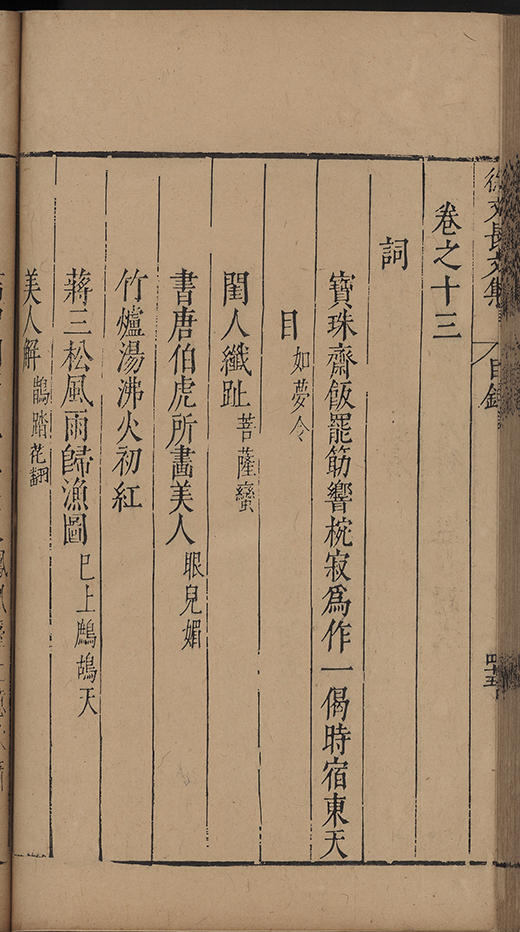 徐文長文集
目錄
四十五
卷之十三
詞
寶珠齋飯罷筯響椀寂爲作一偈時宿東天
目 如夢令
閨人纖趾 菩薩蠻
書唐伯虎所畫美人 眼兒媚
竹爐湯沸火初紅
蔣三松風雨歸漁圖 已上鷓鴣天
美人解 鵲踏花翻